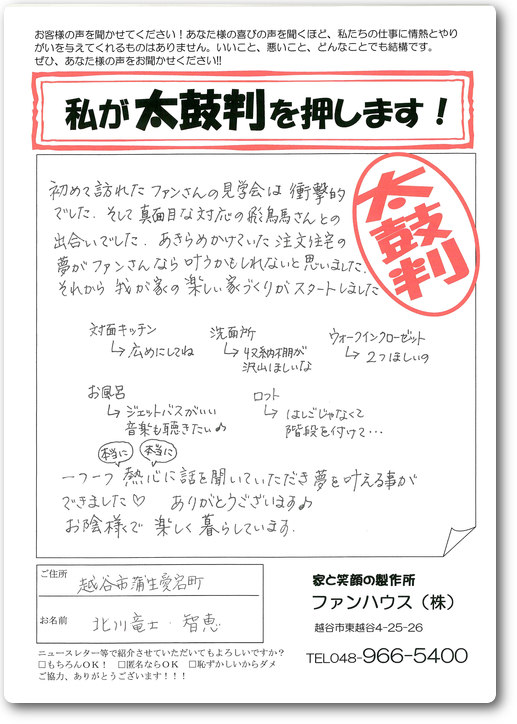 お客様の声を聞かせてください！あなた様の喜びの声を聞くほど、私たちの仕事に情熱とやり
がいを与えてくれるものはありません。いいこと、悪いこと、どんなことでも結構です。
ぜひ、あなた様の声をお聞かせください!!
私が太鼓判を押します！
太鼓判
初めて訪れたファンさんの見学会は衝撃的
でした．そして真面目な対応の飛鳥馬さんとの
出合いでした．あきらめかけていた注文住宅の
夢がファンさんなら叶うかもしれないと思いました．
それから我が家の楽しい家づくりがスタートしました
対面キッチン
↳広めにしてね
洗面所
↳収納棚が
沢山ほしいな
ウォークインクローゼット
↳2つほしいの
お風呂
↳ジェットバスがいい
音楽も聴きたい♪
ロフト
↳はしごじゃなくて
階段を付けて…
本当に 本当に
一つ一つ熱心に話を聞いていただき夢を叶える事が
できました♡ ありがとうございます♪
お陰様で楽しく暮らしています．
ご住所
越谷市蒲生愛宕町
お名前
北川竜士・智恵
家と笑顔の製作所
ファンハウス（株）
越谷市東越谷4-25-26
TEL048-966-5400
ニュースレター等で紹介させていただいてもよろしいですか？
□もちろんOK！ □匿名ならOK □恥ずかしいからダメ
ご協力、ありがとうございます！！！